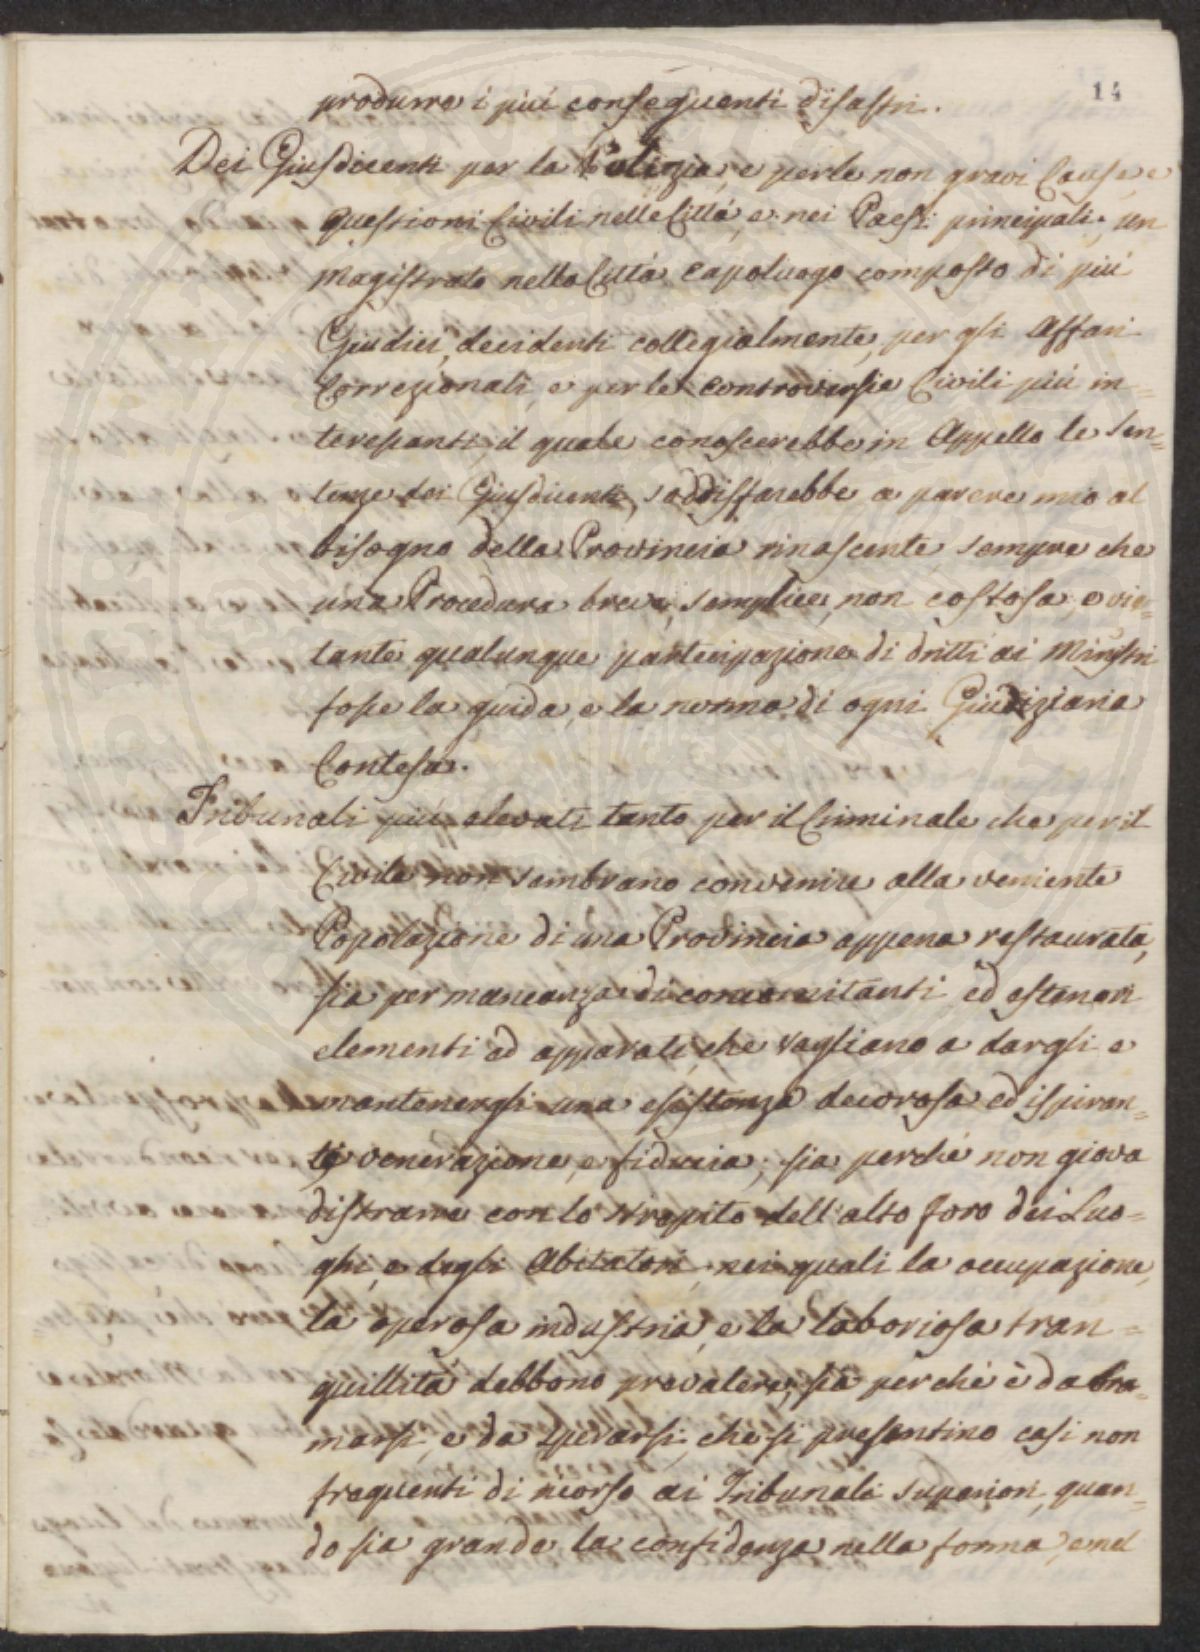 14
produrre i più conseguenti disastri.
Dei Giusdicenti per la Polizia, e per le non gravi Cause, e
questioni Civili nelle Città, e nei Paesi principali, un
Magistrato nella Città Capoluogo composto di più
Giudici, decidenti collegialmente, per gli Affari
Correzionali, e per le controversie Civili più in=
teressanti, il quale conoscerebbe in Appello le Sen=
tenze dei Giusdicenti, soddisfarebbe a parere mio al
bisogno della Provincia rinascente, sempre che
una Procedura breve, semplice, non costosa, e vie=
tante qualunque partecipazione di dritti ai Ministri
fosse la guida, e la norma di ogni Giudiziaria
Contesa.
Tribunali più elevati tanto per il Criminale che per il
Civile non sembrano convenire alla veniente
Popolazione di una Provincia appena restaurata,
sia per mancanza di concomitanti ed esteriori
elementi ed apparati, che vagliano a dargli e
mantenergli una esistenza decorosa ed ispiran=
te venerazione, e fiducia; sia perchè non giova
distrarre con lo strepito dell'alto foro dei Luo=
ghi, e degli Abitatori, nei quali la occupazione,
la operosa industria, e la laboriosa tran=
quillità debbono prevalere; sia perchè è da bra=
marsi, e da sperarsi, che si presentino casi non
frequenti di ricorso ai Tribunali superiori, quan=
do sia grande la confidenza nella forma, e nel